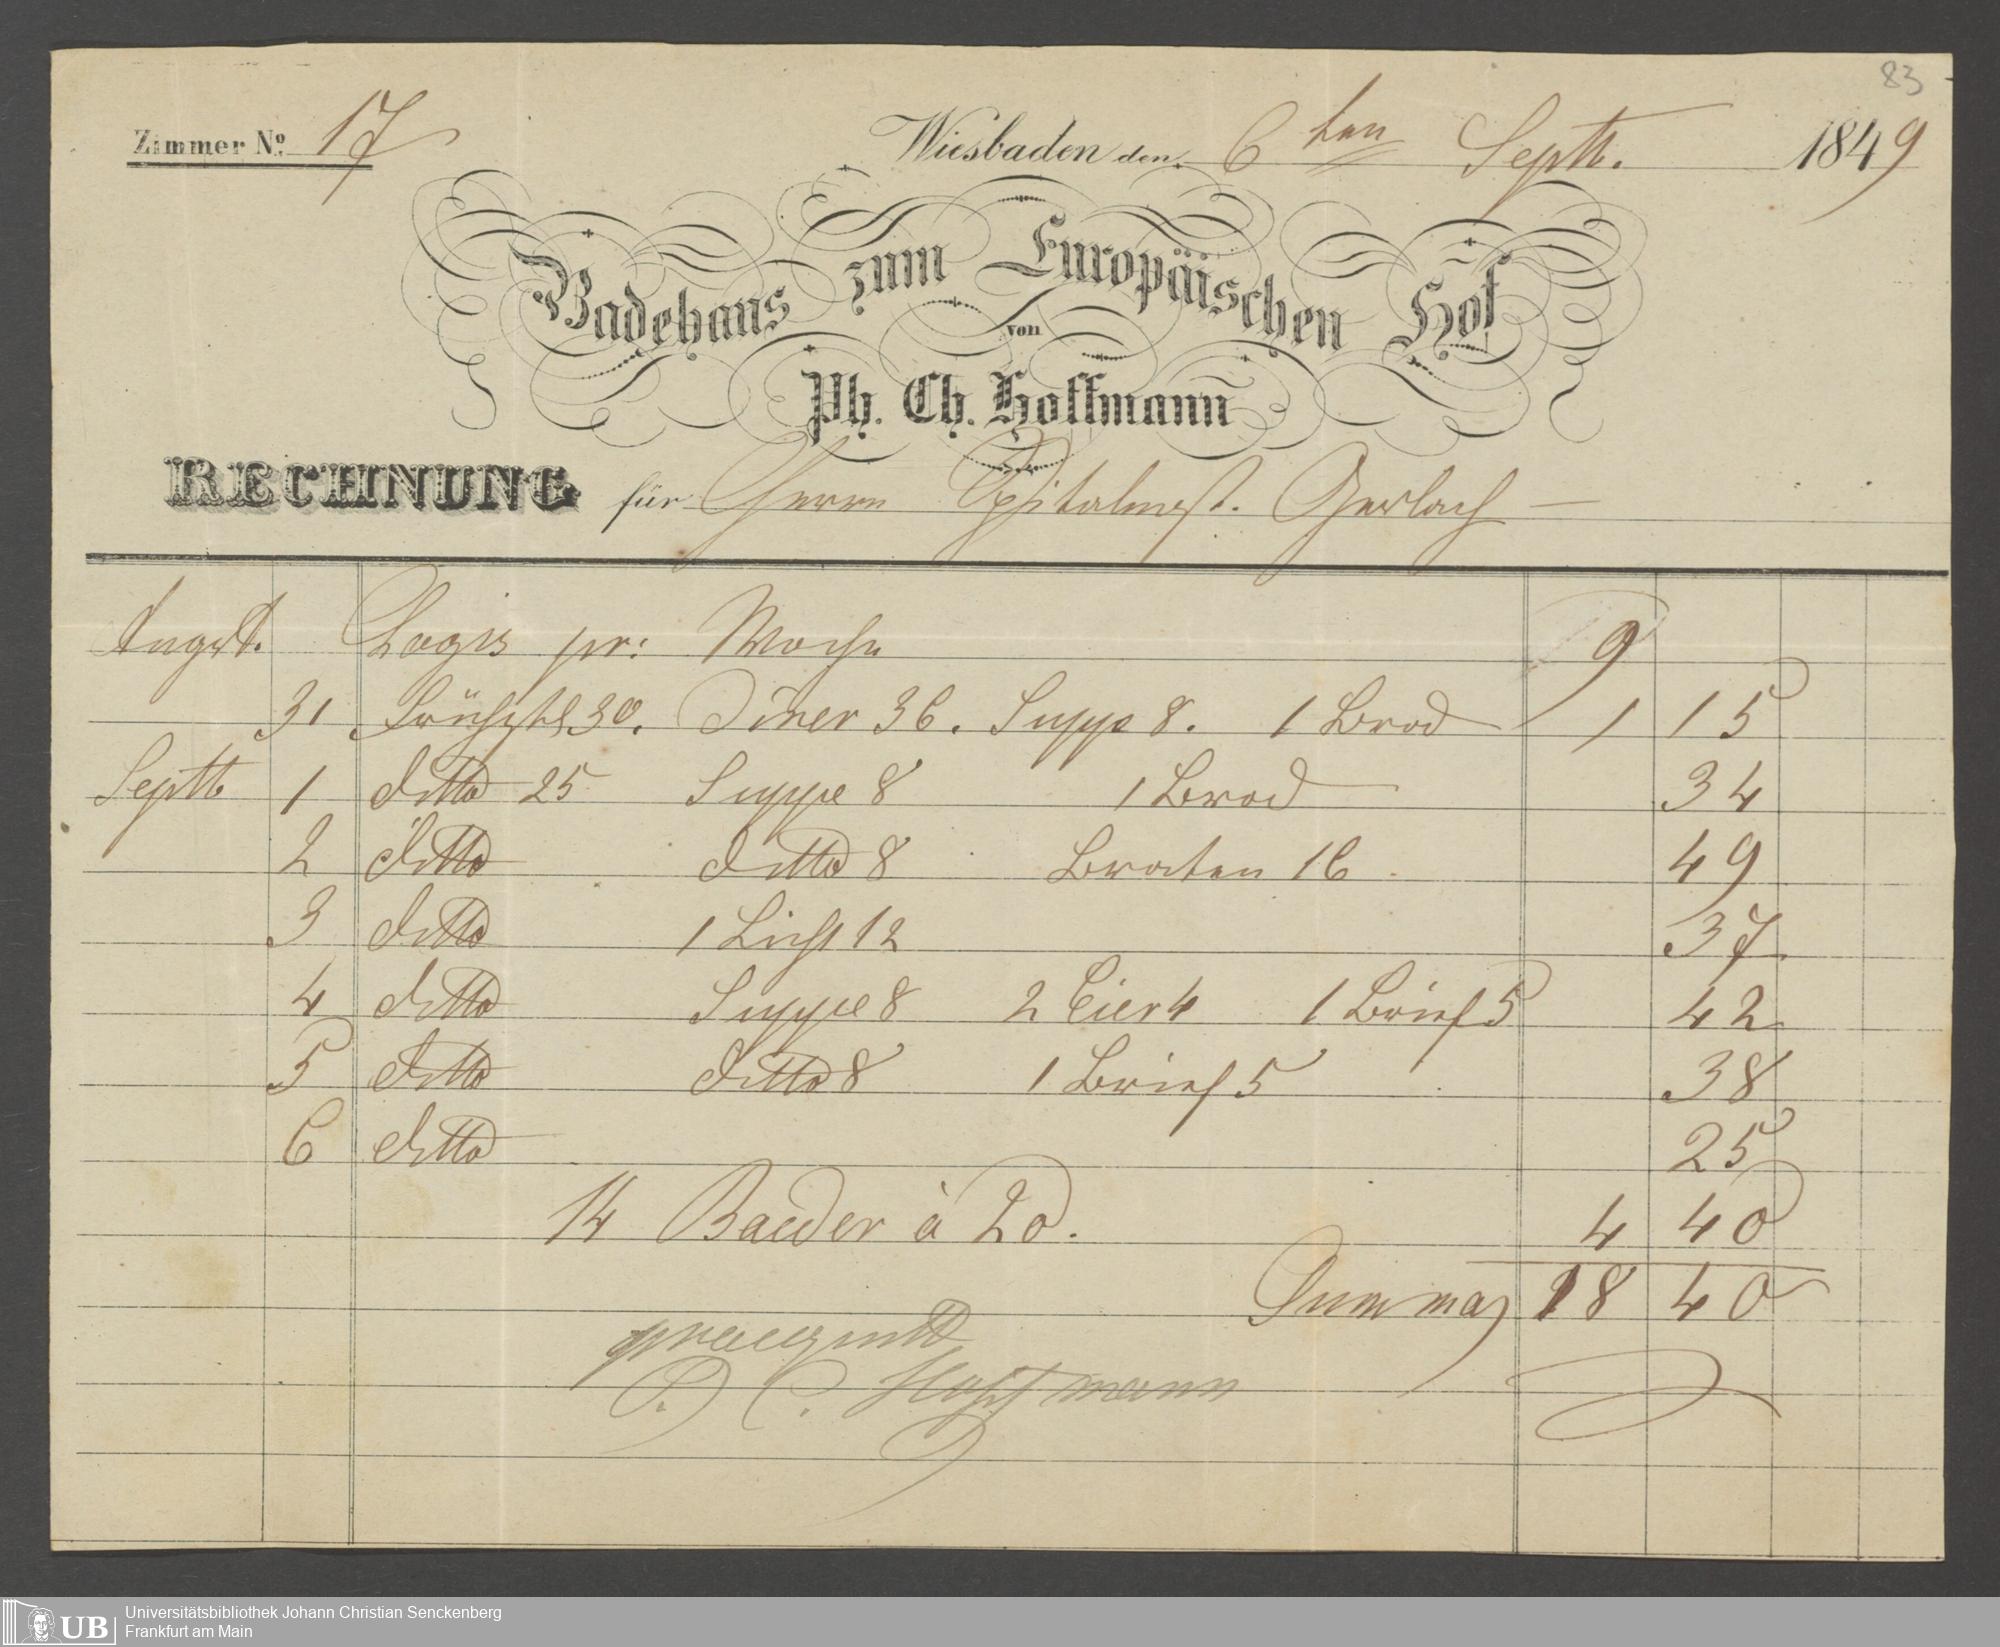 83
Zimmer No. 17
Wiesbaden den 6ten Septb. 1849
Badehaus zum Europäischen Hof
von
Ph. Ch. Hoffmann
RECHNUNG für Herrn Spitalmst. Gerlach
Augst. Logis pr: Woche 9
31 Frühstk 30. Diner 36. Suppe 8. 1 Brod 1 15
Septb 1 ditto 25 Suppe 8 1 Brod 34
2 ditto ditto 8 Braten 16. 49
3 ditto 1 Licht 12 37
4 ditto Suppe 8 2 Eier 4 1 Brief 5 42
5 ditto ditto 8 1 Brief 5 38
6 ditto 25
14 Baeder à 20. 4 40
Summa 18 40
P. C. Hoffmann
UB
Universitätsbibliothek Johann Christian Senckenberg
Frankfurt am Main